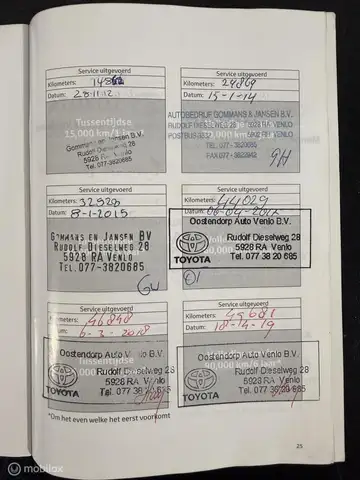 Service uitgevoerd
Kilometers:
Datum: 28-11-12
Tussentijdse
15,000 km/1 jaar
Gommans en Jansen B.V.
Rudolf Dieselweg 28
5928 RA Venlo
Tel. 077-3820685
Service uitgevoerd
Kilometers: 24869
Datum: 15-1-14
AUTOBEDRIJF GOMMANS & JANSEN B.V.
RUDOLF DIESELWEG 28 5928 RA VENLO
TEL. 077-3820685
FAX.077-3823942
Service uitgevoerd
Kilometers: 32528
Datum: 8-1-2015
GOMMANS EN JANSEN BV
RUDOLF DIESELWEG 28
5928 RA VENLO
TEL.077-3820685
Service uitgevoerd
Kilometers: 44029
Datum:
Oostendorp Auto Venlo B.V.
Rudolf Dieselweg 28
5928 RA Venlo
Tel. 077 38 20 685
TOYOTA
Service uitgevoerd
Kilometers: 46848
Datum: 6-3-2018
Oostendorp Auto Venlo B.V.
Rudolf Dieselweg 28
5928 RA Venlo
Tel. 077 38 20 685
TOYOTA
Service uitgevoerd
Kilometers: 49681
Datum: 18-4-19
Oostendorp Auto Venlo B.V.
Rudolf Dieselweg 28
5928 RA Venlo
Tel. 077 38 20 685
TOYOTA
*Om het even welke het eerst voorkomt
25
mobilox